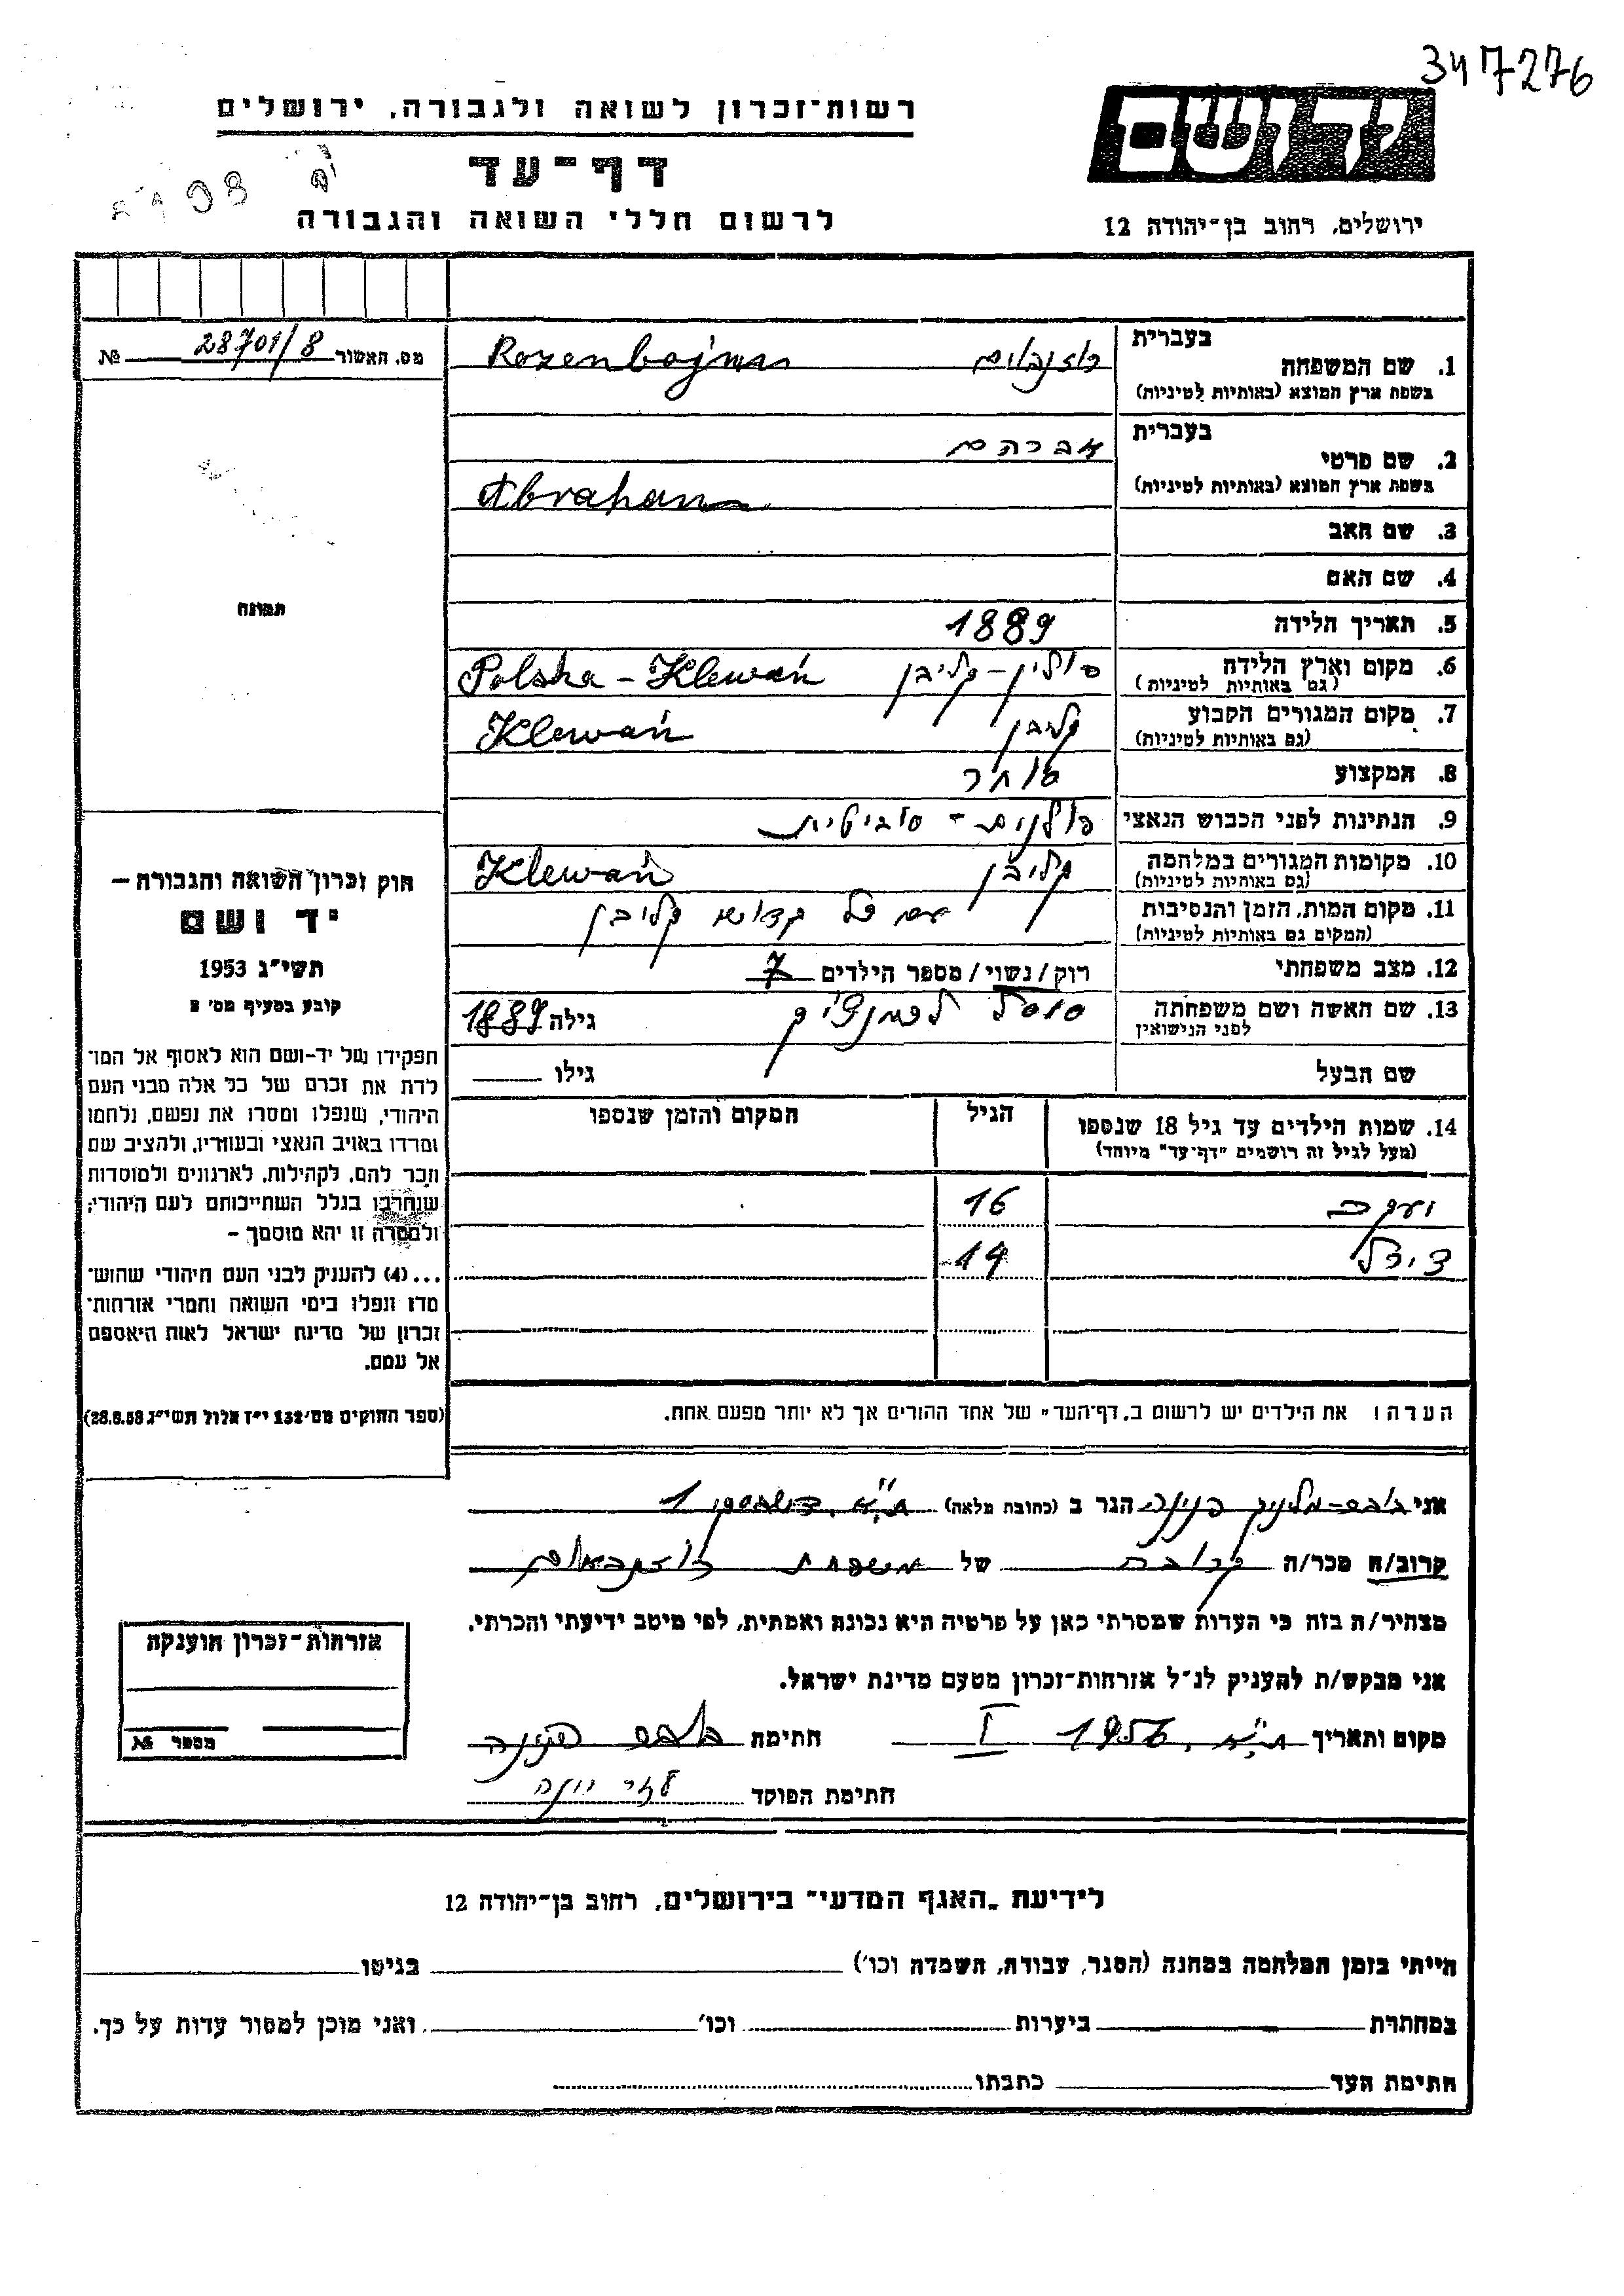 347276
רשות־זכרון לשואה ולגבורה, ירושלים
דף־עד
לרשום חללי השואה והגבורה
יד ושם
ירושלים, רחוב בן־יהודה 12
מס. האשור 28701/8 №
בעברית
1. שם המשפחה רוזנבוים Rozenbojm
בשפת ארץ המוצא (באותיות לטיניות)
בעברית אברהם
2. שם פרטי
בשפת ארץ המוצא (באותיות לטיניות) Abraham
3. שם האב
4. שם האם
5. תאריך הלידה 1889
6. מקום וארץ הלידה פולין - קליבן Polska - Klewań
(גם באותיות לטיניות)
7. מקום המגורים הקבוע קליבן Klewań
(גם באותיות לטיניות)
8. המקצוע סוחר
9. הנתינות לפני הכבוש הנאצי פולנית - סוביטית
10. מקומות המגורים במלחמה קליבן Klewań
(גם באותיות לטיניות)
11. מקום המות, הזמן והנסיבות עם כל קדושי קליבן
(המקום גם באותיות לטיניות)
12. מצב משפחתי רוק/נשוי/מספר הילדים 7
13. שם האשה ושם משפחתה גילה 1889
לפני הנישואין
שם הבעל גילו
14. שמות הילדים עד גיל 18 שנספו הגיל המקום והזמן שנספו
(מעל לגיל זה רושמים "דף־עד" מיוחד)
יעקב 16
14
הערה: את הילדים יש לרשום ב„דף־העד" של אחד ההורים אך לא יותר מפעם אחת.
תמונה
חוק זכרון השואה והגבורה –
יד ושם
תשי"ג 1953
קובע בסעיף מס' 2
תפקידו של יד-ושם הוא לאסוף אל המו־
לדת את זכרם של כל אלה מבני העם
היהודי, שנפלו ומסרו את נפשם, נלחמו
ומרדו באויב הנאצי ובעוזריו, ולהציב שם
וזכר להם, לקהילות, לארגונים ולמוסדות
שנחרבו בגלל השתייכותם לעם היהודי;
ולמטרה זו יהא מוסמך –
...(4) להעניק לבני העם היהודי שהוש־
מדו ונפלו בימי השואה והמרי אזרחות־
זכרון של מדינת ישראל לאות היאספם
אל עמם.
(ספר החוקים מס' 132 י"ז אלול תשי"ג 28.8.53)
אני פנינה הגר ב (כתובת מלאה) ת"א, 1
קרוב/ה מכר/ה קרובה של משפחת רוזנבאום
מצהיר/ה בזה כי העדות שמסרתי כאן על פרטיה היא נכונה ואמתית, לפי מיטב ידיעתי והכרתי.
אני מבקש/ת להעניק לנ"ל אזרחות־זכרון מטעם מדינת ישראל.
מקום ותאריך ת"א, 1956 I חתימה פנינה
חתימת הפוקד
אזרחות־זכרון הוענקה
מספר №
לידיעת „האגף המדעי" בירושלים, רחוב בן־יהודה 12
הייתי בזמן המלחמה במחנה (הסגר, עבודה, השמדה וכו') בגיטו
במחתרת ביערות וכו' ואני מוכן למסור עדות על כך.
חתימת העד כתבתו